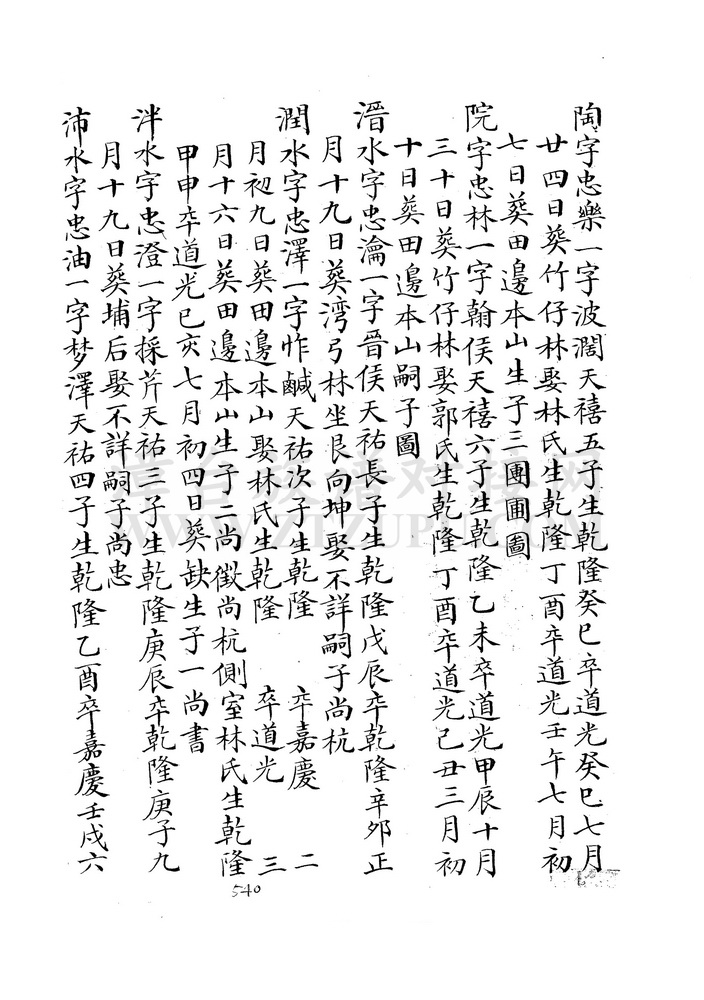 陶字忠樂一字波濶天禧五子生乾隆癸巳卒道光癸巳七月
廿四日葵竹仔林娶林氏生乾隆丁酉卒道光壬午七月初
七日葵田邊本山生子三團圃圖
院字忠林一字翰侯天禧六子生乾隆乙未卒道光甲辰十月
三十日葵竹仔林娶郭氏生乾隆丁酉卒道光己丑三月初
十日葵田邊本山嗣子圖
溍水字忠瀹一字晉侯天祐長子生乾隆戊辰卒乾隆辛卯正
月十九日葵湾弓林坐艮向坤娶不詳嗣子尚杭
潤水字忠澤一字怍鹹天祐次子生乾隆 卒嘉慶 二
月初九日葵田邊本山娶林氏生乾隆 卒道光 三
月十六日葵田邊本山生子二尚徵尚杭側室林氏生乾隆
甲申卒道光己亥七月初四日葵缺生子一尚書
泮水字忠澄一字採芹天祐三子生乾隆庚辰卒乾隆庚子九
月十九日葵埔后娶不詳嗣子尚忠
沛水字忠油一字梦澤天祐四子生乾隆乙酉卒嘉慶壬戌六
540
WWW.ZTZUPU.COM